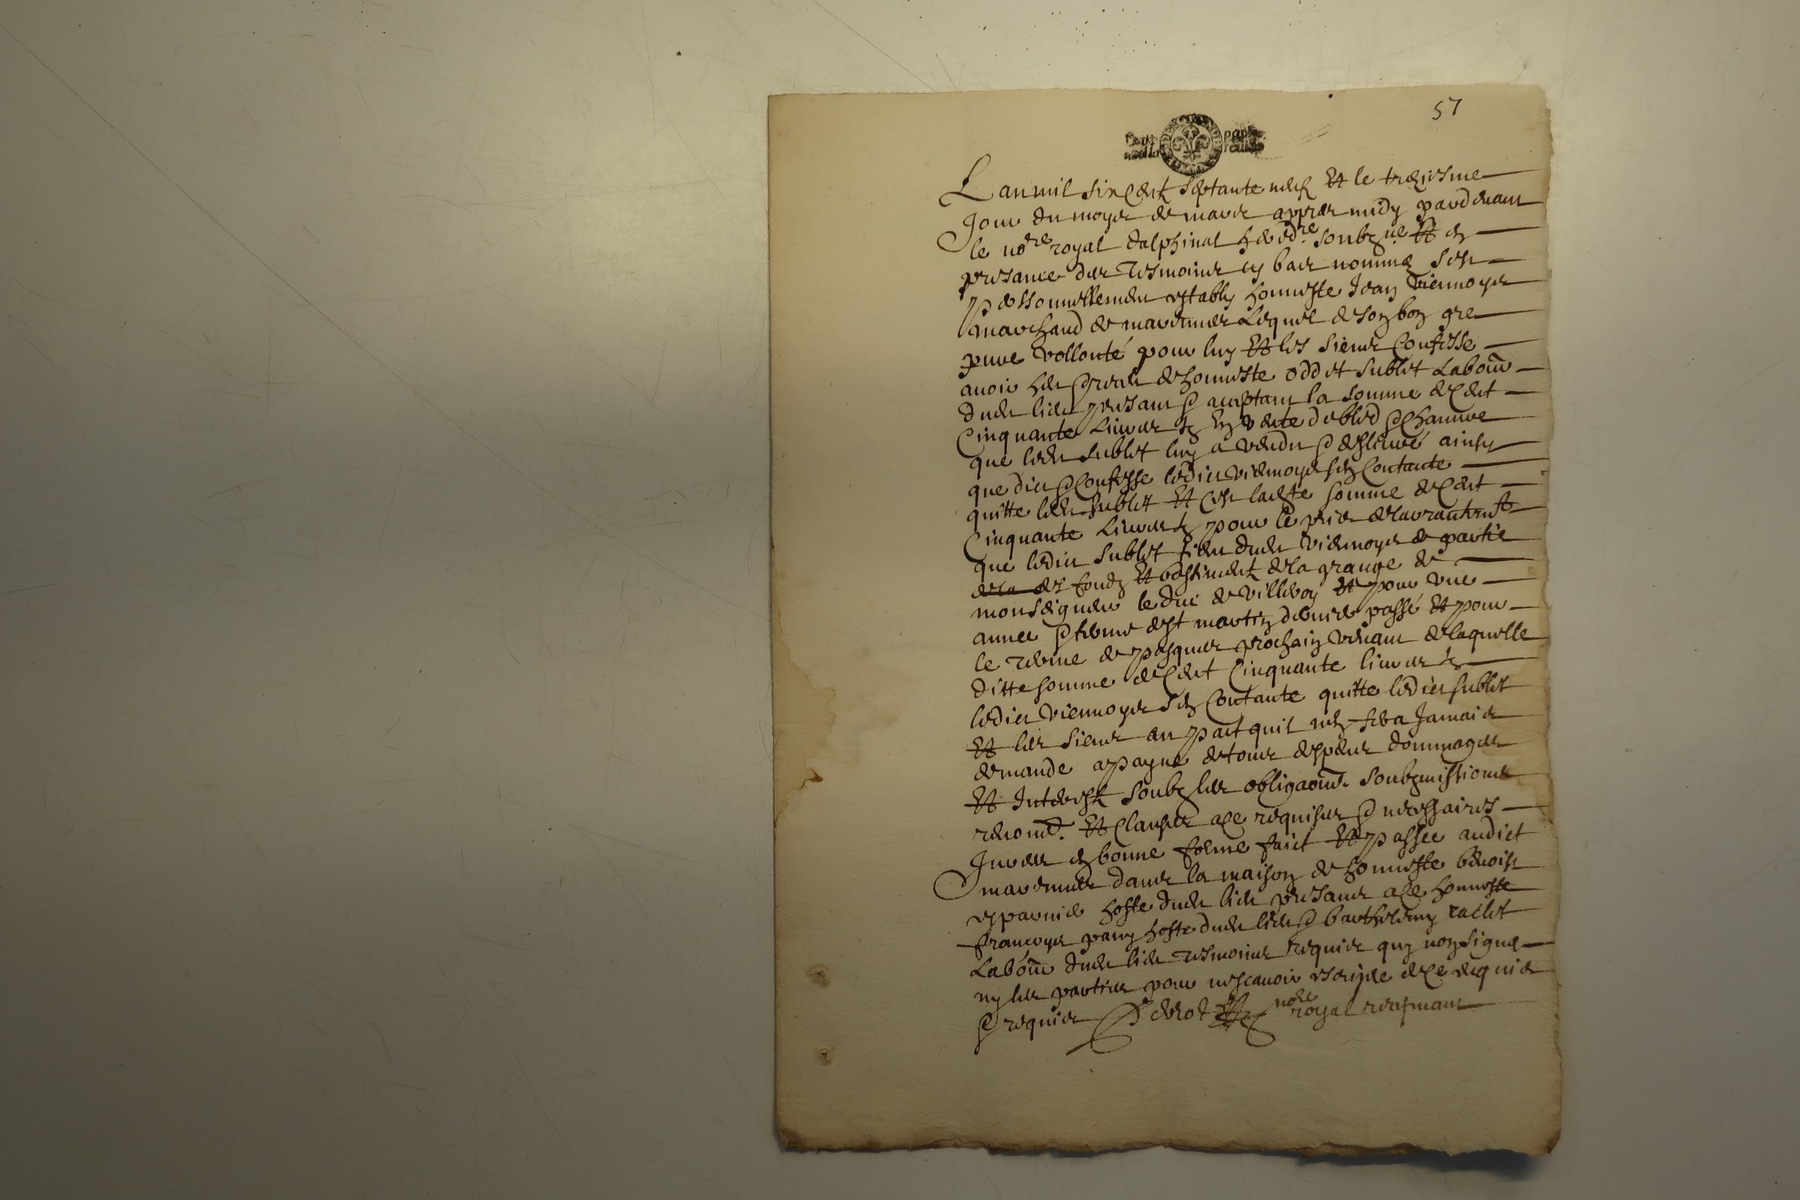 57
L an mil six cent septante neuf Et le treziesme
Jour du moys de mars appres midy pardevant
le no.re royal dalphinal heredre soubzne Et en
presance des tesmoins cy bas nommes sest
personnellement estably honneste Jean Viennoys
marchand de marennes Lequel de son bon gre
pure vollonté pour luy Et les siens Confesse
avoir heu de honneste oddet sublet Labour
dudt lieu presant & aceptant la somme de Cent
Cinquante Livres En vente de bled & Chanvre
que ledt sublet luy a vendu & deslivré ainsy
que dict & Confesse ledict Viennoys sen Contante
quitte ledt sublet Et Cest ladte somme de Cent
Cinquante Livres pour le pris de
que ledict sublet tient dudt Viennoys de partie
de la des fondz Et bastiment de la grange de
monseigneur le duc de Villeroy Et pour une
annee & ferme de st martin dernier passé Et pour
le terme de pasques prochain venant de laquelle
ditte somme de Cent Cinquante livres
ledict Viennoys sen Contante quitte ledict sublet
Et les siens au pact quil nen fera Jamais
demande a payne de tous despens dommages
Et Interest soubz les obligaons soubzmissions
renond. Et Clauses a ce requises & necessaires
Jurees en bonne forme faict Et passee audict
marennes dans la maison de honneste benoist
hoste dudt lieu presans a Ce honneste
francoys pany hoste dudt lieu & barthelemy raclet
Labour dudt lieu tesmoins requis quy non signe
ny les parties pour ne scavoir escripre de Ce enquis
& requis nore royal recepvant